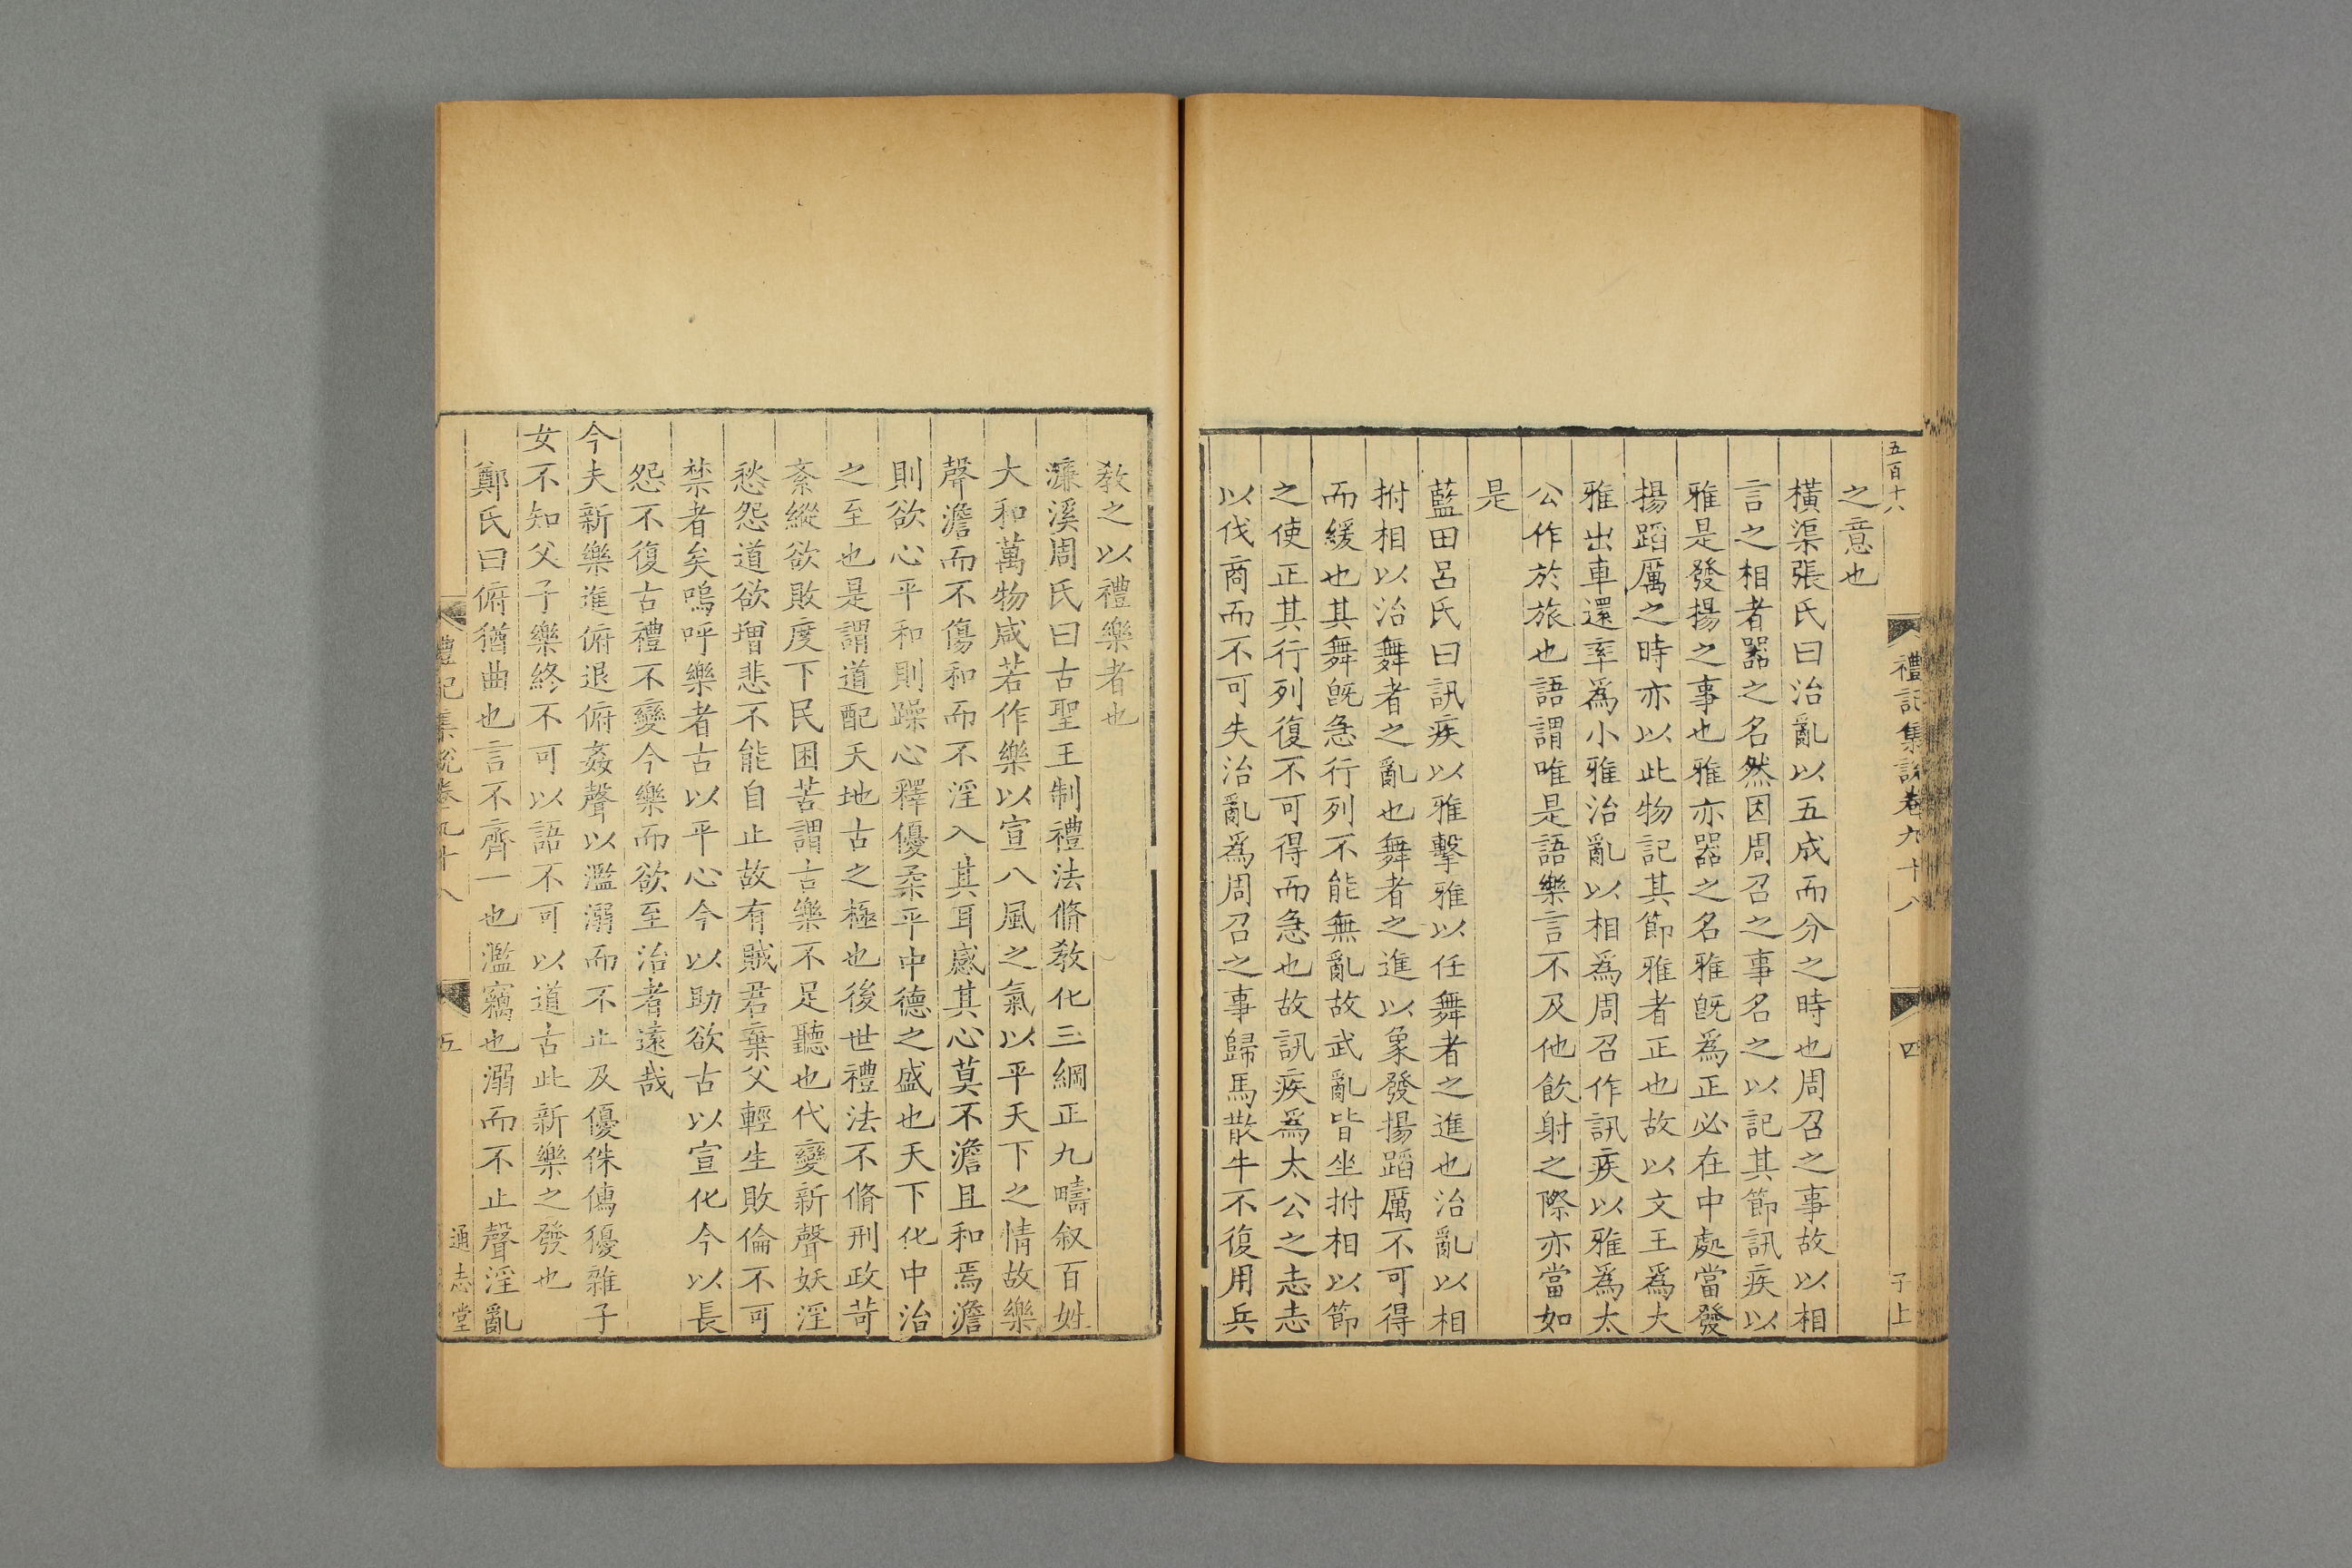 五百十八
禮記集說卷九十八
四
子上
之意也
橫渠張氏曰治亂以五成而分之時也周召之事故以相
言之相者器之名然因周召之事名之以記其節訊疾以
雅是發揚之事也雅亦器之名雅旣爲正必在中處當發
揚蹈厲之時亦以此物記其節雅者正也故以文王爲大
雅出車還率爲小雅治亂以相爲周召作訊疾以雅爲太
公作於旅也語謂唯是語樂言不及他飲射之際亦當如
是
藍田呂氏曰訊疾以雅擊雅以任舞者之進也治亂以相
拊相以治舞者之亂也舞者之進以象發揚蹈厲不可得
而緩也其舞旣急行列不能無亂故武亂皆坐拊相以節
之使正其行列復不可得而急也故訊疾爲太公之志志
以伐商而不可失治亂爲周召之事歸馬散牛不復用兵
教之以禮樂者也
濂溪周氏曰古聖王制禮法脩敎化三綱正九疇叙百姓
大和萬物咸若作樂以宣八風之氣以平天下之情故樂
聲澹而不傷和而不淫入其耳感其心莫不澹且和焉澹
則欲心平和則躁心釋優柔平中德之盛也天下化中治
之至也是謂道配天地古之極也後世禮法不脩刑政苛
紊縱欲敗度下民困苦謂古樂不足聽也代變新聲妖淫
愁怨道欲增悲不能自止故有賊君棄父輕生敗倫不可
禁者矣嗚呼樂者古以平心今以助欲古以宣化今以長
怨不復古禮不變今樂而欲至治者遠哉
今夫新樂進俯退俯姦聲以濫溺而不止及優侏儒獶雜子
女不知父子樂終不可以語不可以道古此新樂之發也
鄭氏曰俯猶曲也言不齊一也濫竊也溺而不止聲淫亂
禮記集說卷九十八
五
通志堂